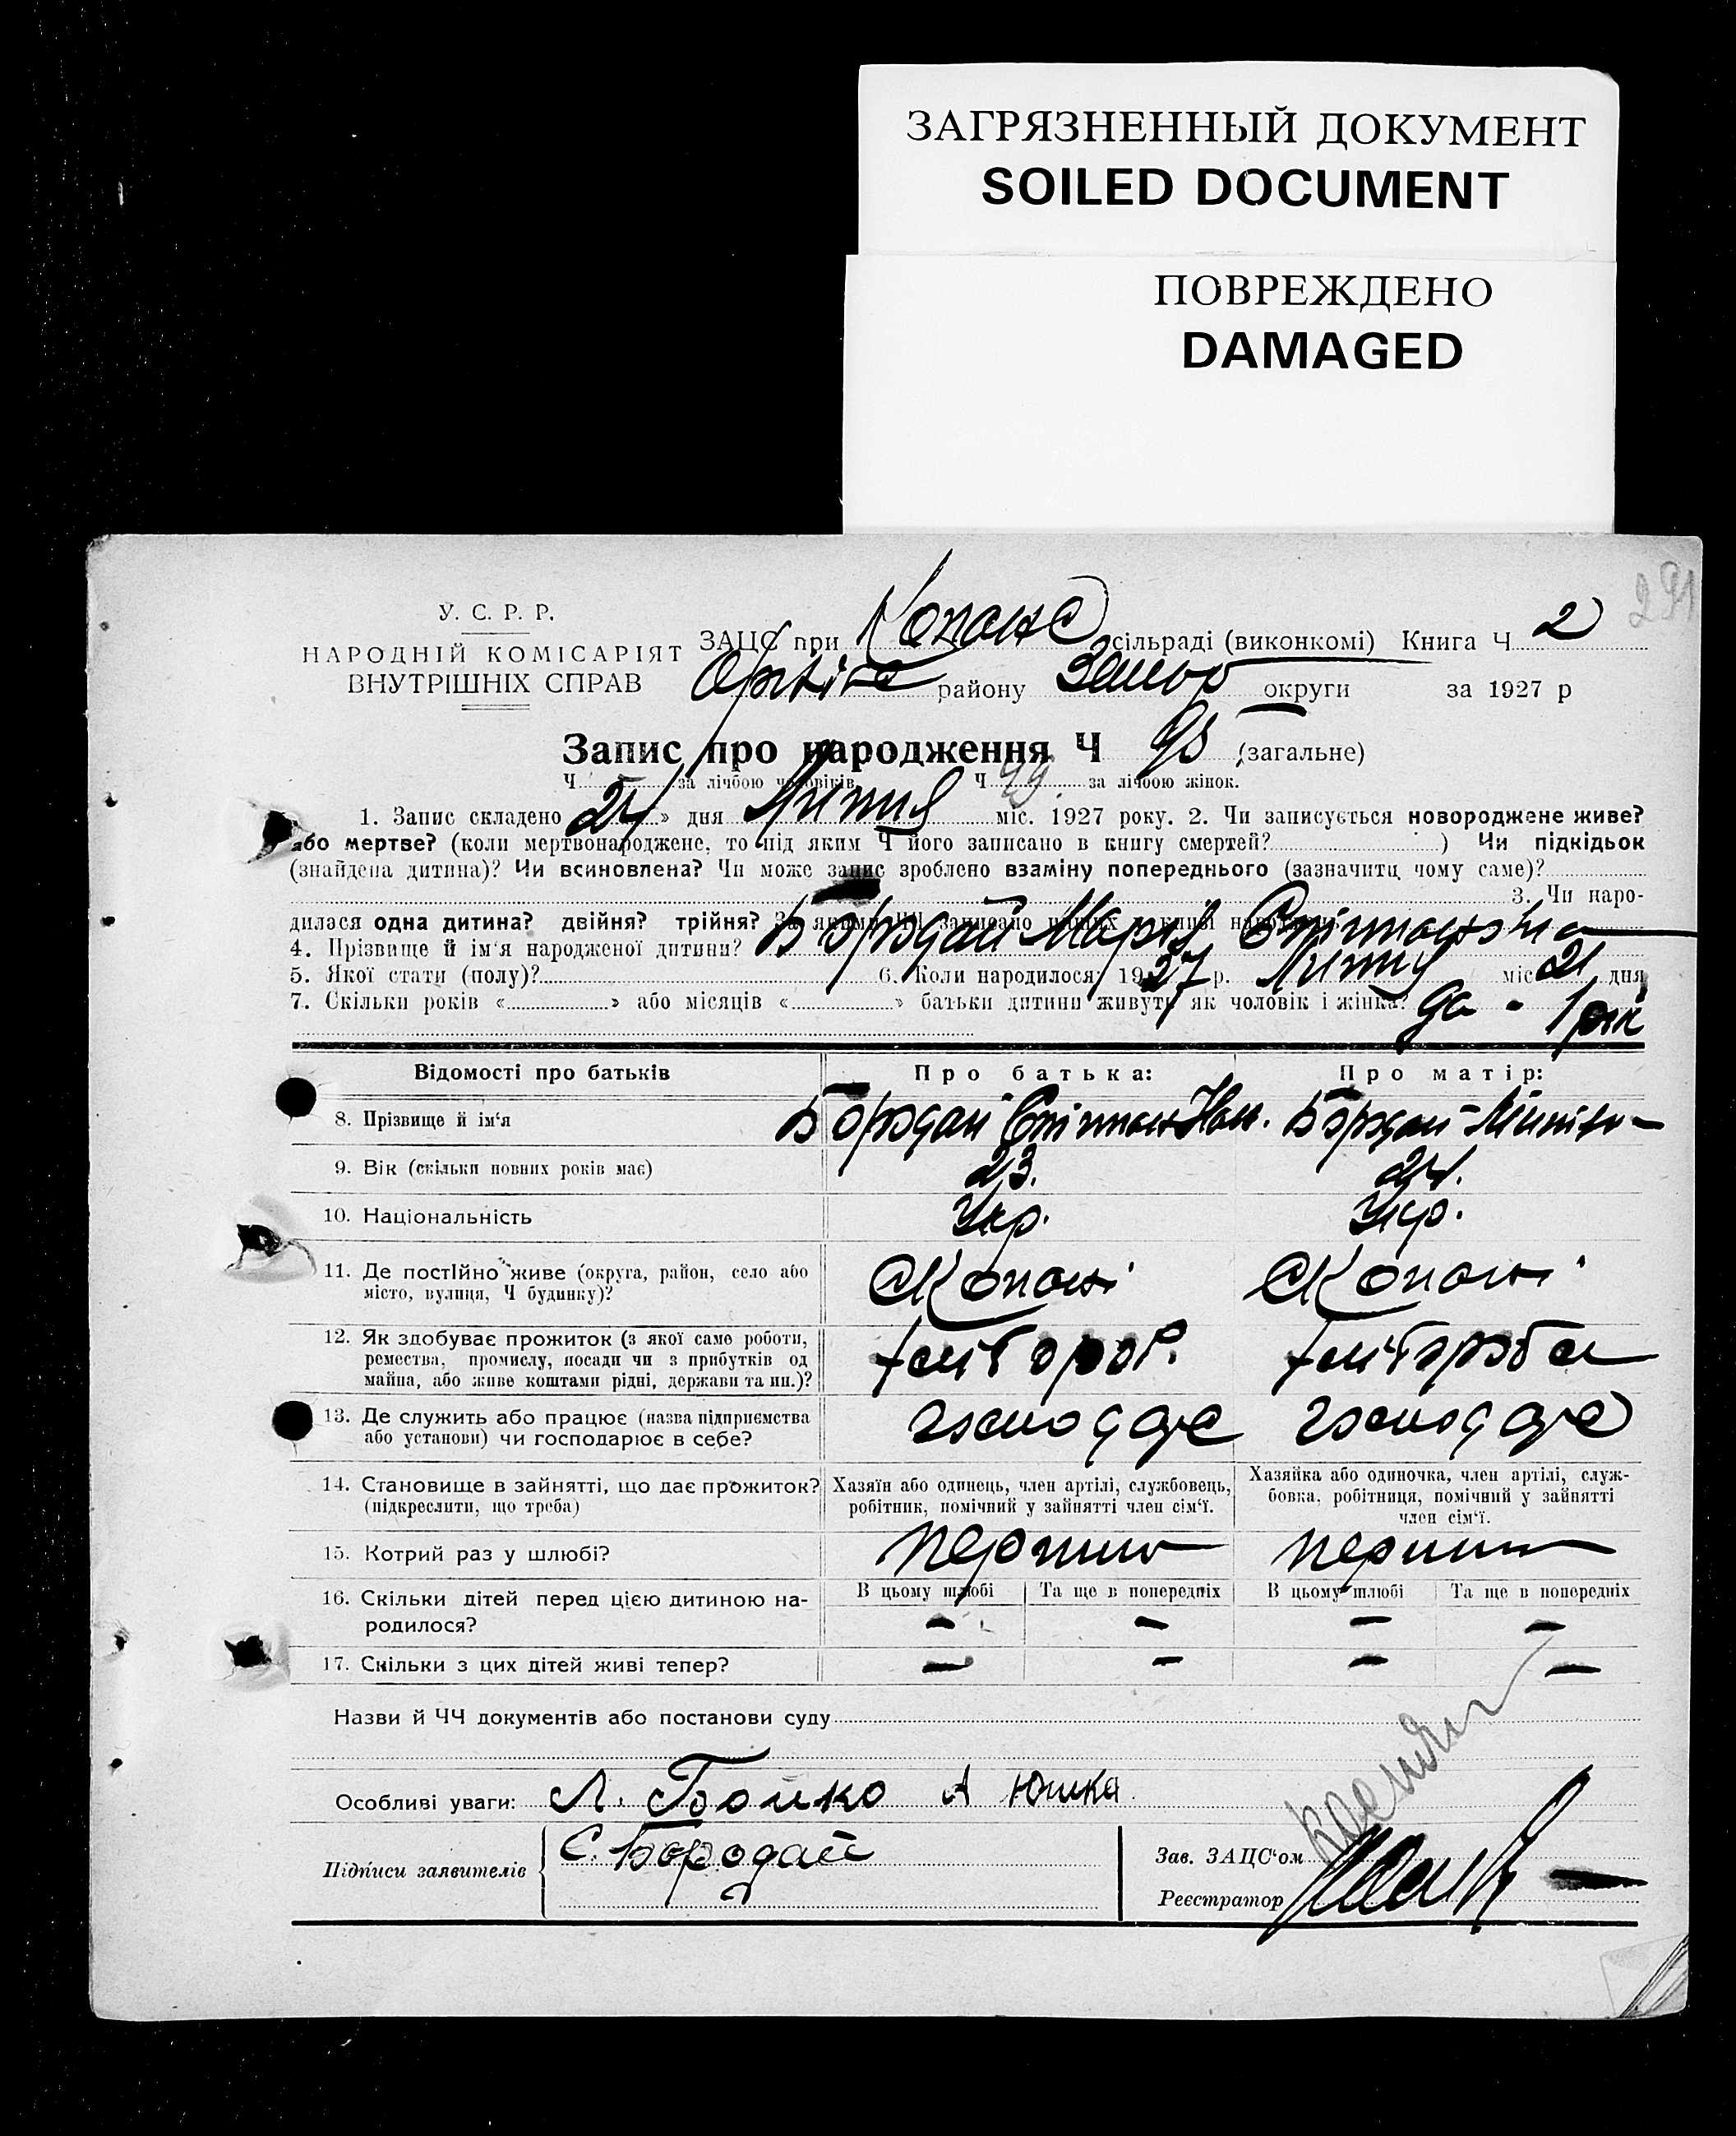 ЗАГРЯЗНЕННЫЙ ДОКУМЕНТ
SOILED DOCUMENT
ПОВРЕЖДЕНО
DAMAGED
291
У. С. Р. Р.
НАРОДНІЙ КОМІСАРІЯТ
ВНУТРІШНІХ СПРАВ
ЗАЦС при Копане сільраді (виконкомі) Книга Ч 2
району округи за 1927 р
Запис про народження Ч 98 (загальне)
Ч за лічбою чоловіків Ч 49 за лічбою жінок.
1. Запис складено 24 » дня Липня міс. 1927 року. 2. Чи записується новороджене живе?
або мертве? (коли мертвонароджене, то під яким Ч його записано в книгу смертей? ) Чи підкідьок
(знайдена дитина)? Чи всиновлена? Чи може запис зроблено взаміну попереднього (зазначити, чому саме)?
3. Чи наро-
дилася одна дитина? двійня? трійня? За якими ЧЧ записано інших в книзі народжень
4. Прізвище й ім'я народженої дитини? Бородай Марія
5. Якої стати (полу)? 6. Коли народилося: 1927 р. Липня міс 21 дня
7. Скільки років « » або місяців « » батьки дитини живуть як чоловік і жінка? да - 1 рік
Відомості про батьків Про батька: Про матір:
8. Прізвище й ім'я Бородай Бородай
9. Вік (скільки повних років має) 23. 24.
10. Національність Укр. Укр.
11. Де постійно живе (округа, район, село або
місто, вулиця, Ч будинку)? с Копані с Копані
12. Як здобуває прожиток (з якої саме роботи,
ремества, промислу, посади чи з прибутків од
майна, або живе коштами рідні, держави та ин.)? хлібороб. хлібороб
13. Де служить або працює (назва підприємства
або установи) чи господарює в себе?
14. Становище в зайнятті, що дає прожиток?
(підкреслити, що треба)
Хазяїн або одинець, член артілі, службовець,
робітник, помічний у зайнятті член сім'ї.
Хазяйка або одиночка, член артілі, служ-
бовка, робітниця, помічний у зайнятті
член сім'ї.
15. Котрий раз у шлюбі?
В цьому шлюбі Та ще в попередніх В цьому шлюбі Та ще в попередніх
16. Скільки дітей перед цією дитиною на-
родилося? — — — —
17. Скільки з цих дітей живі тепер? — — — —
Назви й ЧЧ документів або постанови суду
Особливі уваги: Л. Бойко А Юшка
Підписи заявителів С. Бородай
Зав. ЗАЦС'ом
Реєстратор